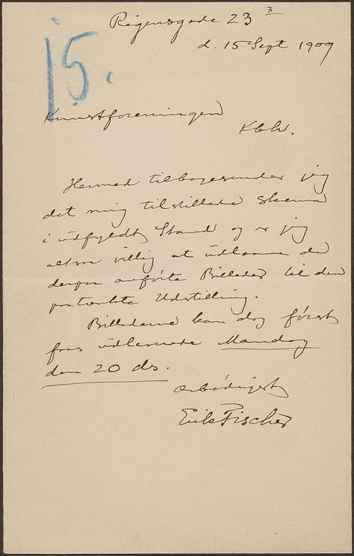 Rigensgade 23 3
d. 15 Sept 1909
15.
Kunstforeningen
Kbh.
Hermed tilbagesender jeg
det mig tilstillede Skema
i udfyldt Stand og er jeg
altsaa villig at udlaane de
derpaa anførte Billeder til den
paatænkte Udstilling.
Billederne kan dog først
faas udleverede Mandag
den 20 ds.
ærbødigst
Erik Fischer